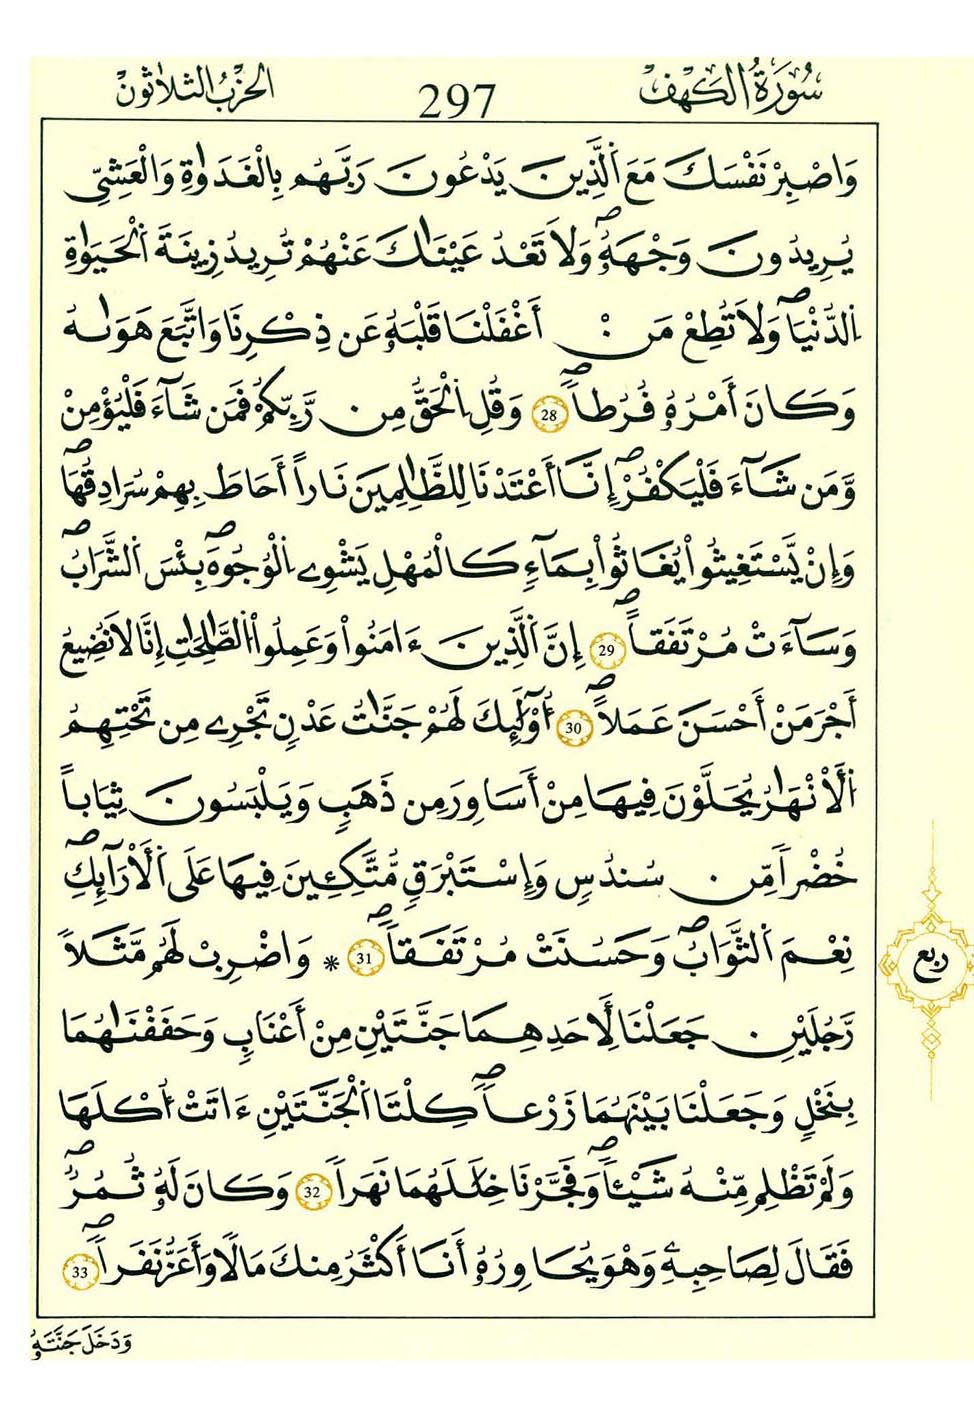 سُورَةُ الْكَهْفِ
297
الحِزْبُ الثَّلاَثُونَ
وَاصْبِرْ نَفْسَكَ مَعَ اَ۬لذِينَ يَدْعُونَ رَبَّهُم بِالْغَدَوٰةِ وَالْعَشِيِّ
يُرِيدُونَ وَجْهَهُۥۖ وَلَا تَعْدُ عَيْنَٰكَ عَنْهُمْ تُرِيدُ زِينَةَ اَ۬لْحَيَوٰةِ
اِ۬لدُّنْيَاۖ وَلَا تُطِعْ مَنَ اَغْفَلْنَا قَلْبَهُۥ عَن ذِكْرِنَا وَاتَّبَعَ هَوَىٰهُ
وَكَانَ أَمْرُهُۥ فُرُطاٗۖ 28 وَقُلِ اِ۬لْحَقُّ مِن رَّبِّكُمْ فَمَن شَآءَ فَلْيُؤْمِنْ
وَّمَن شَآءَ فَلْيَكْفُرْۖ إِنَّآ أَعْتَدْنَا لِلظَّٰلِمِينَ نَاراً أَحَاطَ بِهِمْ سُرَادِقُهَاۖ
وَإِنْ يَّسْتَغِيثُواْ يُغَاثُواْ بِمَآءٖ كَالْمُهْلِ يَشْوِے اِ۬لْوُجُوهَۖ بِئْسَ اَ۬لشَّرَابُۖ
وَسَآءَتْ مُرْتَفَقاًۖ 29 إِنَّ اَ۬لذِينَ ءَامَنُواْ وَعَمِلُواْ اُ۬لصَّٰلِحَٰتِ إِنَّا لَا نُضِيعُ
أَجْرَ مَنْ أَحْسَنَ عَمَلاًۖ 30 اُوْلَٰٓئِكَ لَهُمْ جَنَّٰتُ عَدْنٖ تَجْرِے مِن تَحْتِهِمُ
اُ۬لْأَنْهَٰرُ يُحَلَّوْنَ فِيهَا مِنْ أَسَاوِرَ مِن ذَهَبٖ وَيَلْبَسُونَ ثِيَاباً
خُضْراٗ مِّن سُندُسٖ وَإِسْتَبْرَقٖ مُّتَّكِـِٕينَ فِيهَا عَلَى اَ۬لْأَرَآئِكِۖ
نِعْمَ اَ۬لثَّوَابُۖ وَحَسُنَتْ مُرْتَفَقاٗۖ 31 * وَاضْرِبْ لَهُم مَّثَلاٗ
رَّجُلَيْنِ جَعَلْنَا لِأَحَدِهِمَا جَنَّتَيْنِ مِنْ أَعْنَٰبٖ وَحَفَفْنَٰهُمَا
بِنَخْلٖ وَجَعَلْنَا بَيْنَهُمَا زَرْعاٗۖ كِلْتَا اَ۬لْجَنَّتَيْنِ ءَاتَتْ اُكْلَهَا
وَلَمْ تَظْلِم مِّنْهُ شَيْـٔاٗۖ وَفَجَّرْنَا خِلَٰلَهُمَا نَهَراٗ 32 وَكَانَ لَهُۥ ثُمُرٞۖ
فَقَالَ لِصَاحِبِهِۦ وَهْوَ يُحَاوِرُهُۥٓ أَنَا أَكْثَرُ مِنكَ مَالاٗ وَأَعَزُّ نَفَراٗۖ 33
ربع
وَدَخَلَ جَنَّتَهُۥ